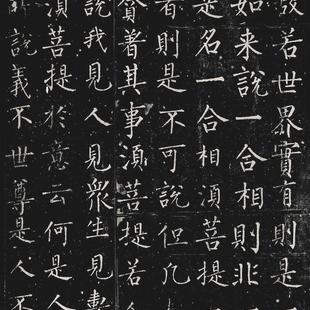 故若世界實有則是一
如来說一合相則非一
是名一合相須菩提
者則是不可說但凡
貪著其事須菩提若人
說我見人見衆生見壽
須菩提於意云何是人
說義不世尊是人不